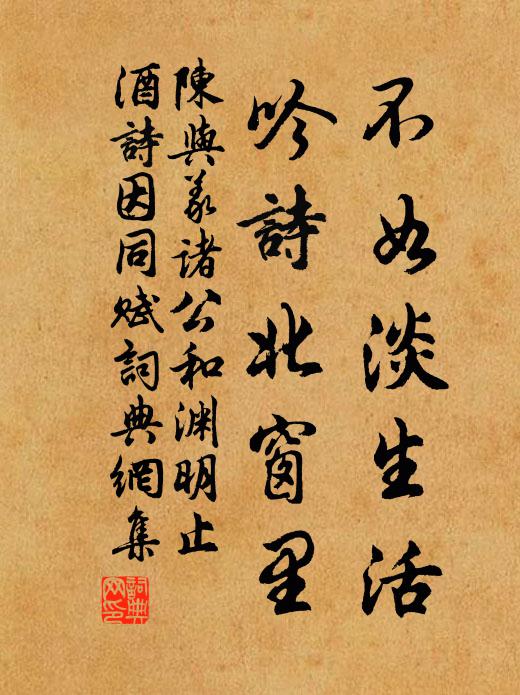 不如淡生活
吟詩北窗里
陳與義諸公和渊明止
酒詩因同赋詞典網集
詞典
网印